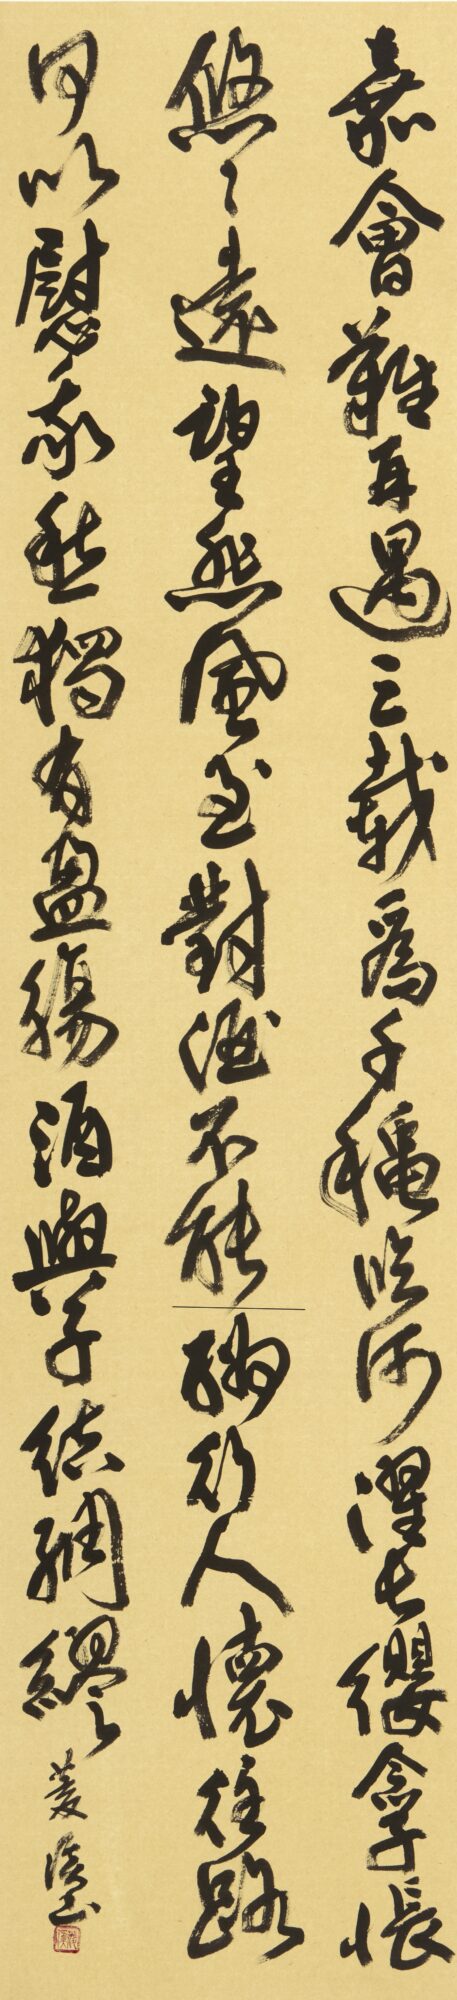 嘉會難再遇三載爲千穐臨河濯長纓念子悵
悠々遠望悲風至對酒不能酬行人懷往路
何以慰我愁獨有盈觴酒與子結綢繆